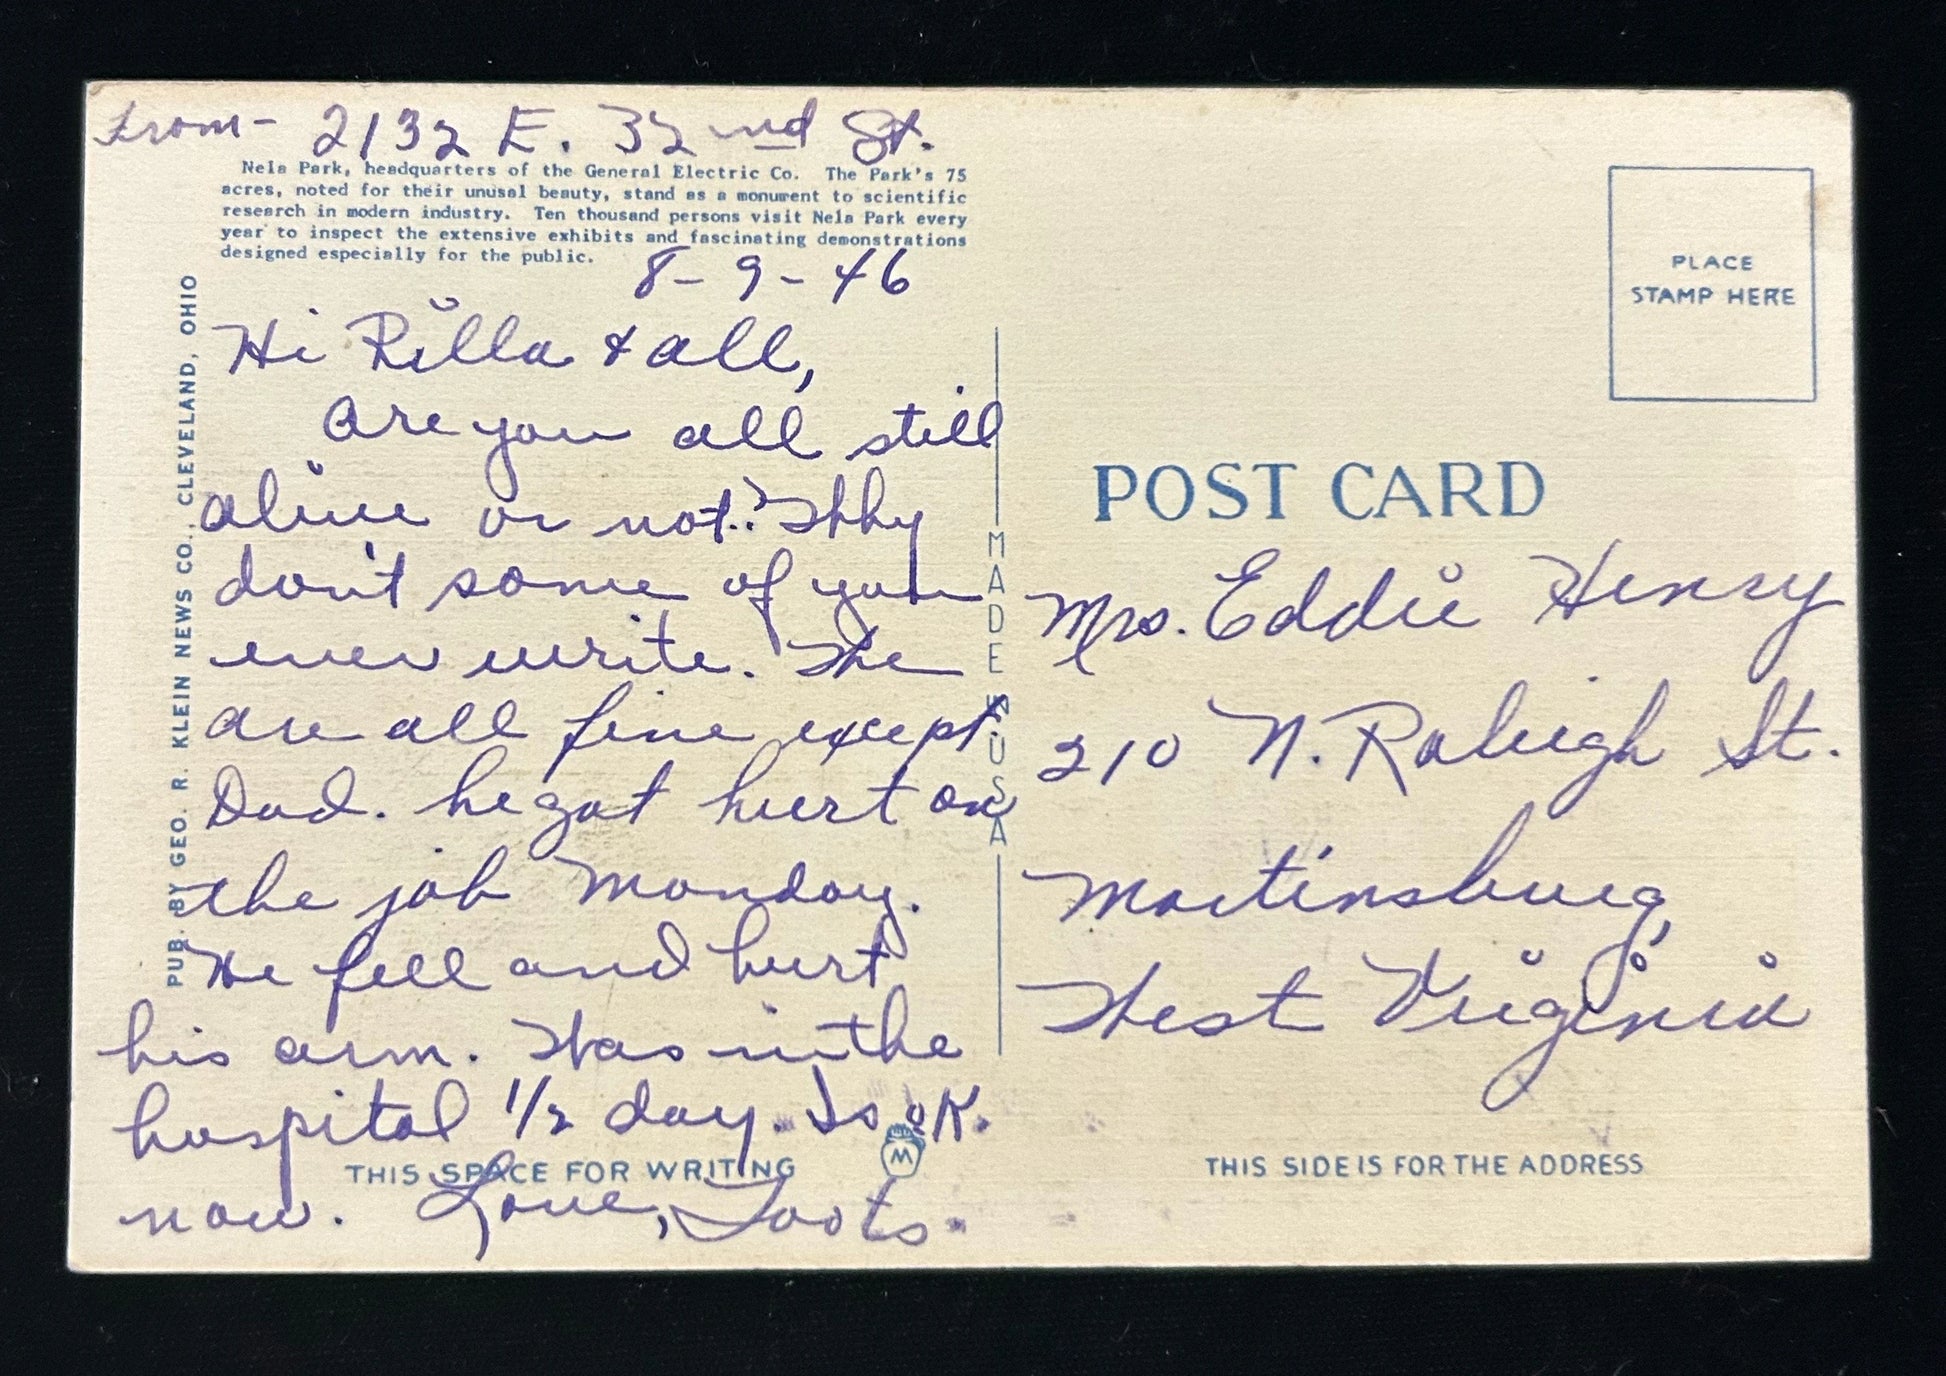 From- 2132 E. 32nd St.
Nela Park, headquarters of the General Electric Co. The Park's 75
acres, noted for their unusal beauty, stand as a monument to scientific
research in modern industry. Ten thousand persons visit Nela Park every
year to inspect the extensive exhibits and fascinating demonstrations
designed especially for the public.
8-9-46
Hi Rilla & all,
Are you all still
alive or not? Why
don't some of you
ever write. We
are all fine except
Dad. he got hurt on
the job Monday.
He fell and hurt
his arm. Was in the
hospital 1/2 day. Is OK.
now. Love, Toots.
THIS SPACE FOR WRITING
M
PUB. BY GEO. R. KLEIN NEWS CO., CLEVELAND, OHIO
MADE IN USA
PLACE
STAMP HERE
POST CARD
Mrs. Eddie Henry
210 N. Raleigh St.
Martinsburg,
West Virginia
THIS SIDE IS FOR THE ADDRESS